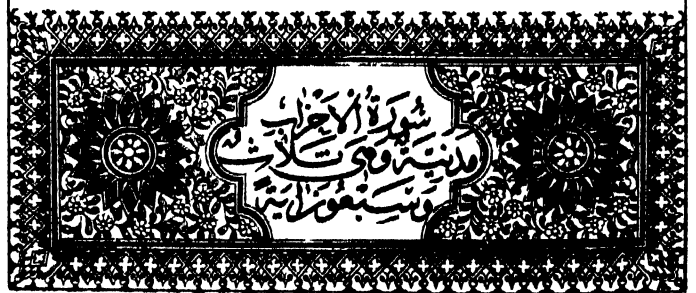 سُورَةُ الأَحْزَابِ
مَدَنِيَّةٌ وَهِيَ ثَلَاثٌ
وَسَبْعُونَ آيَةً